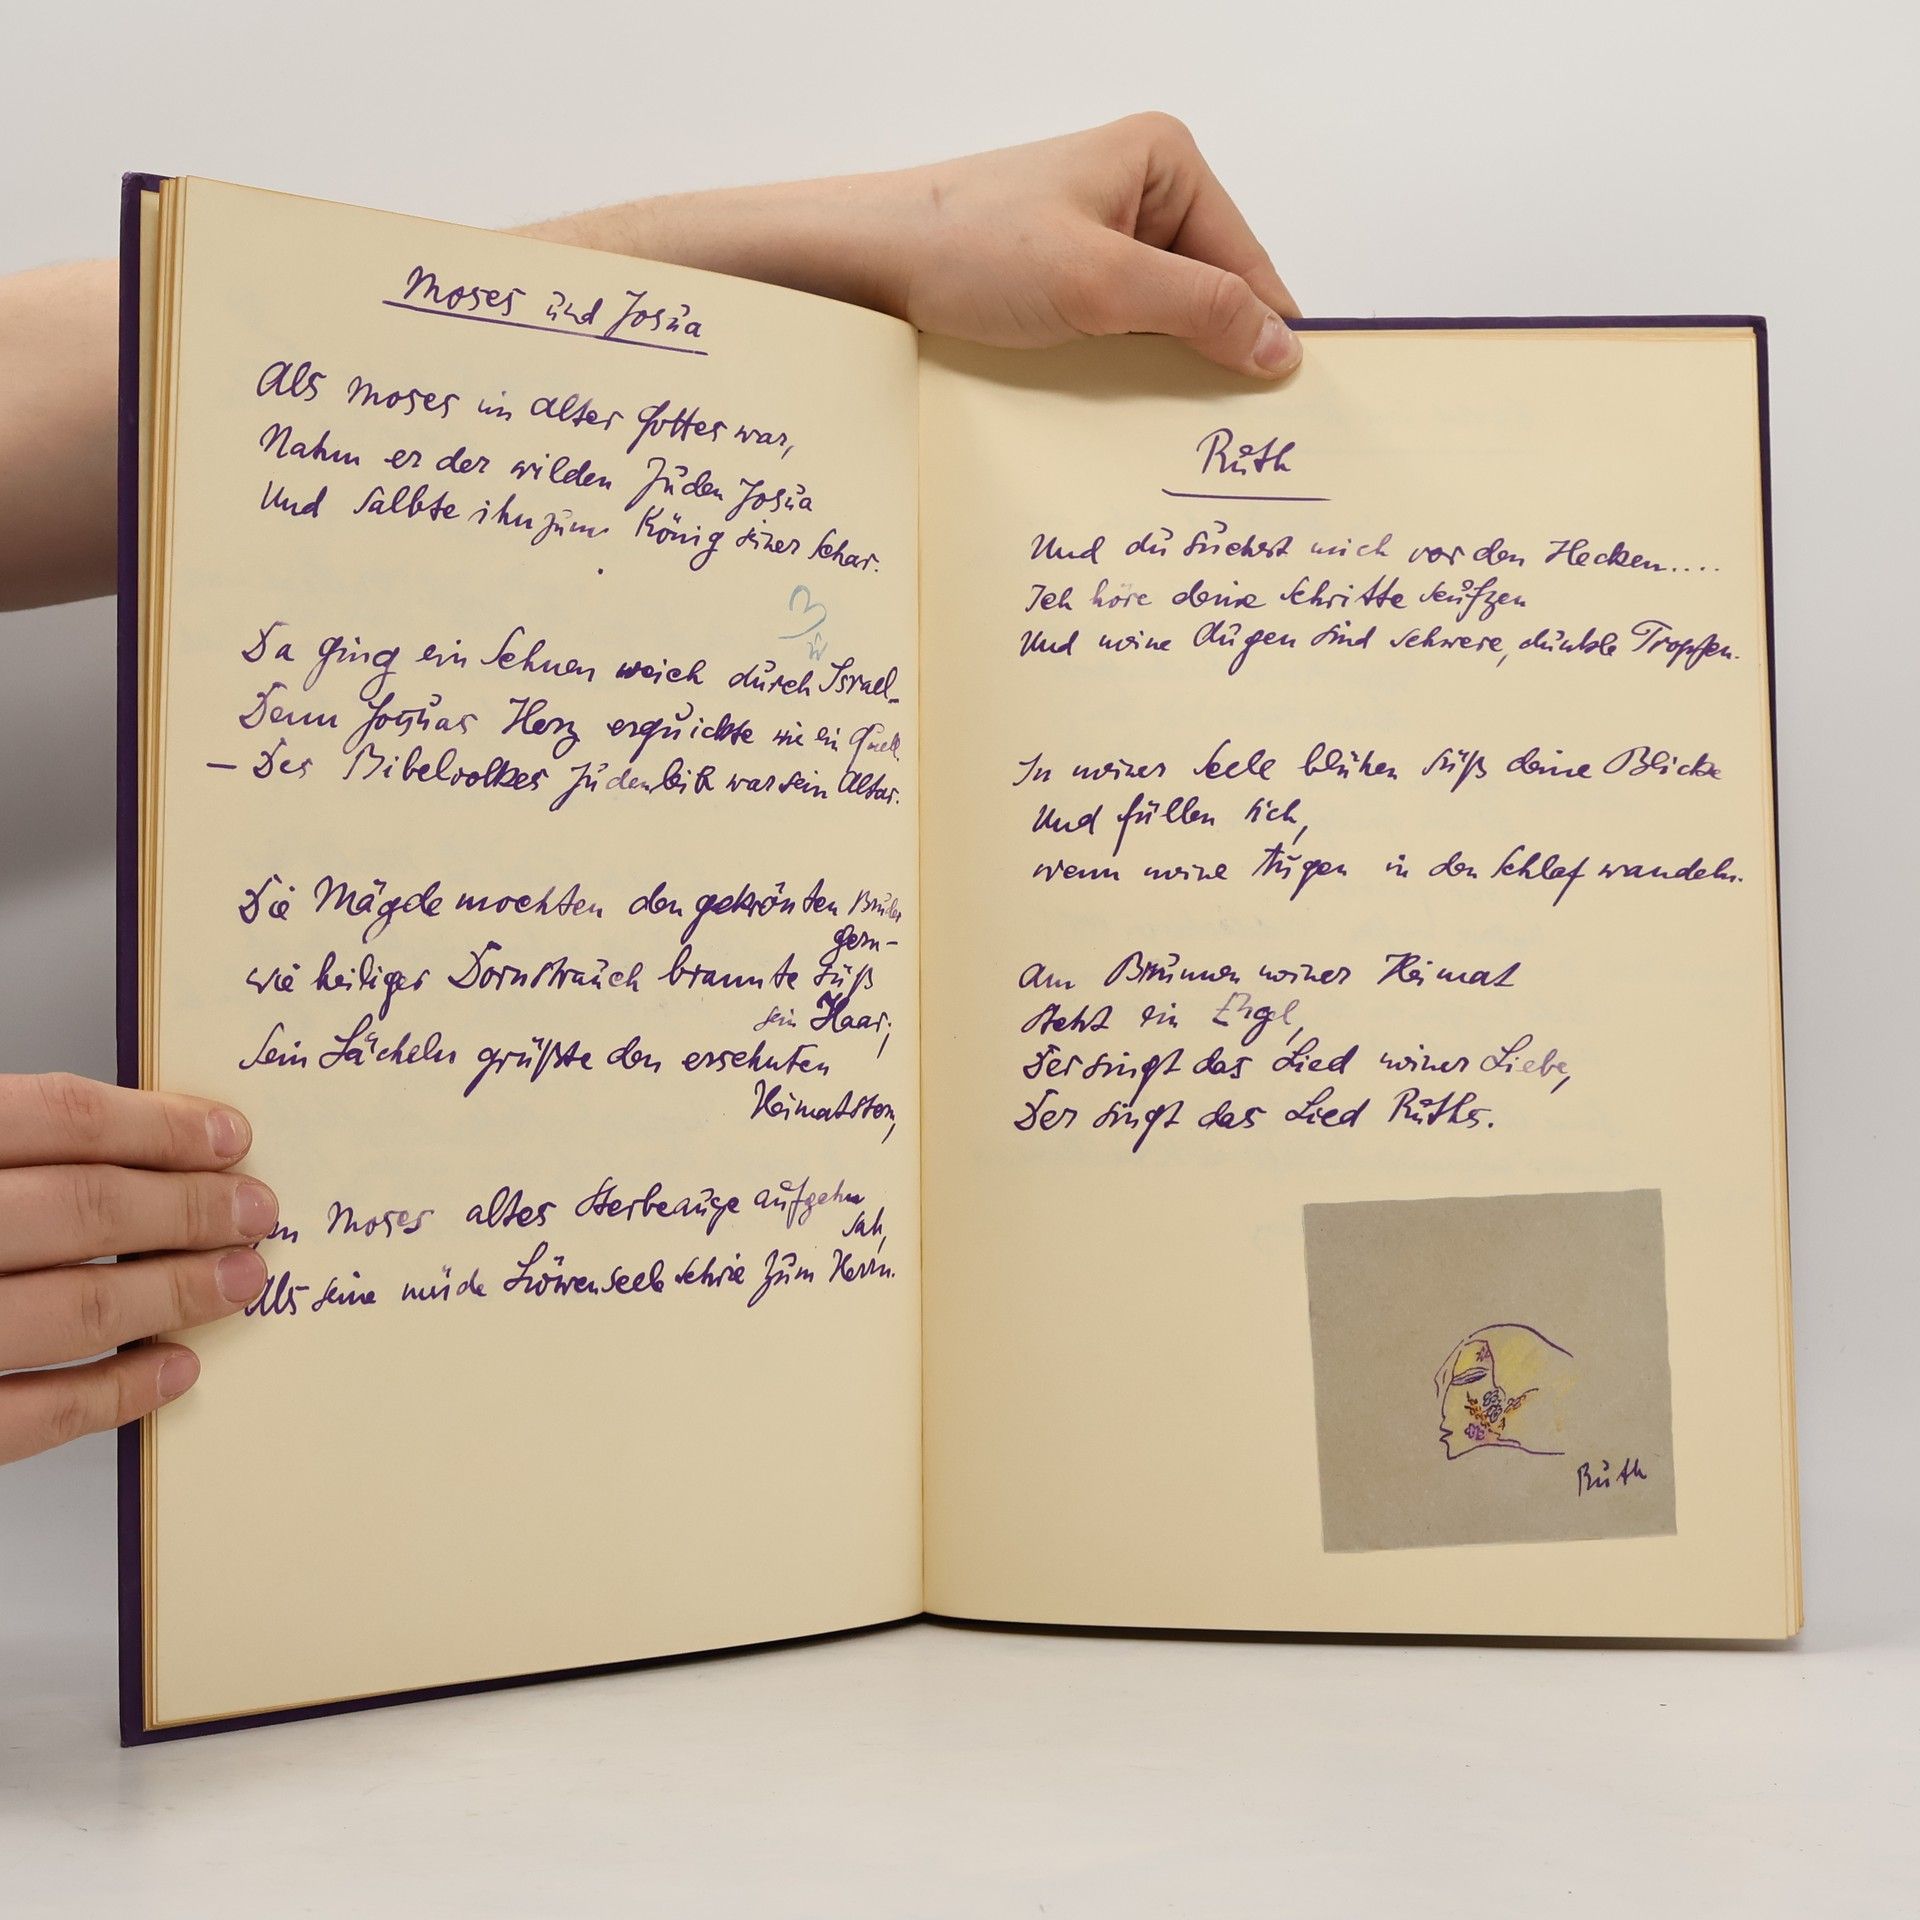 Moses und Josua
Als Moses im Alter Gottes war,
Nahm er den wilden Juden Josua
Und salbte ihn zum König seiner Schar.
Da ging ein Sehnen weich durch Israel –
Denn Josuas Herz erquickte wie ein Quell.
– Des Bibelvolkes Judenleib war sein Altar.
Die Mägde mochten den gekrönten Bruder
gern –
Wie heiliger Dornstrauch brannte süß
sein Haar;
Sein Lächeln grüßte den ersehnten
Heimatstern,
Den Moses altes Sterbeauge aufgehn
sah,
Als seine müde Löwenseele schrie zum Herrn.
Ruth
Und du suchst mich vor den Hecken....
Ich höre deine Schritte seufzen
Und meine Augen sind schwere, dunkle Tropfen.
In meiner Seele blühen süß deine Blicke
Und füllen sich,
wenn meine Augen in den Schlaf wandeln.
Am Brunnen meiner Heimat
steht ein Engel,
Der singt das Lied meiner Liebe,
Der singt das Lied Ruths.
Ruth